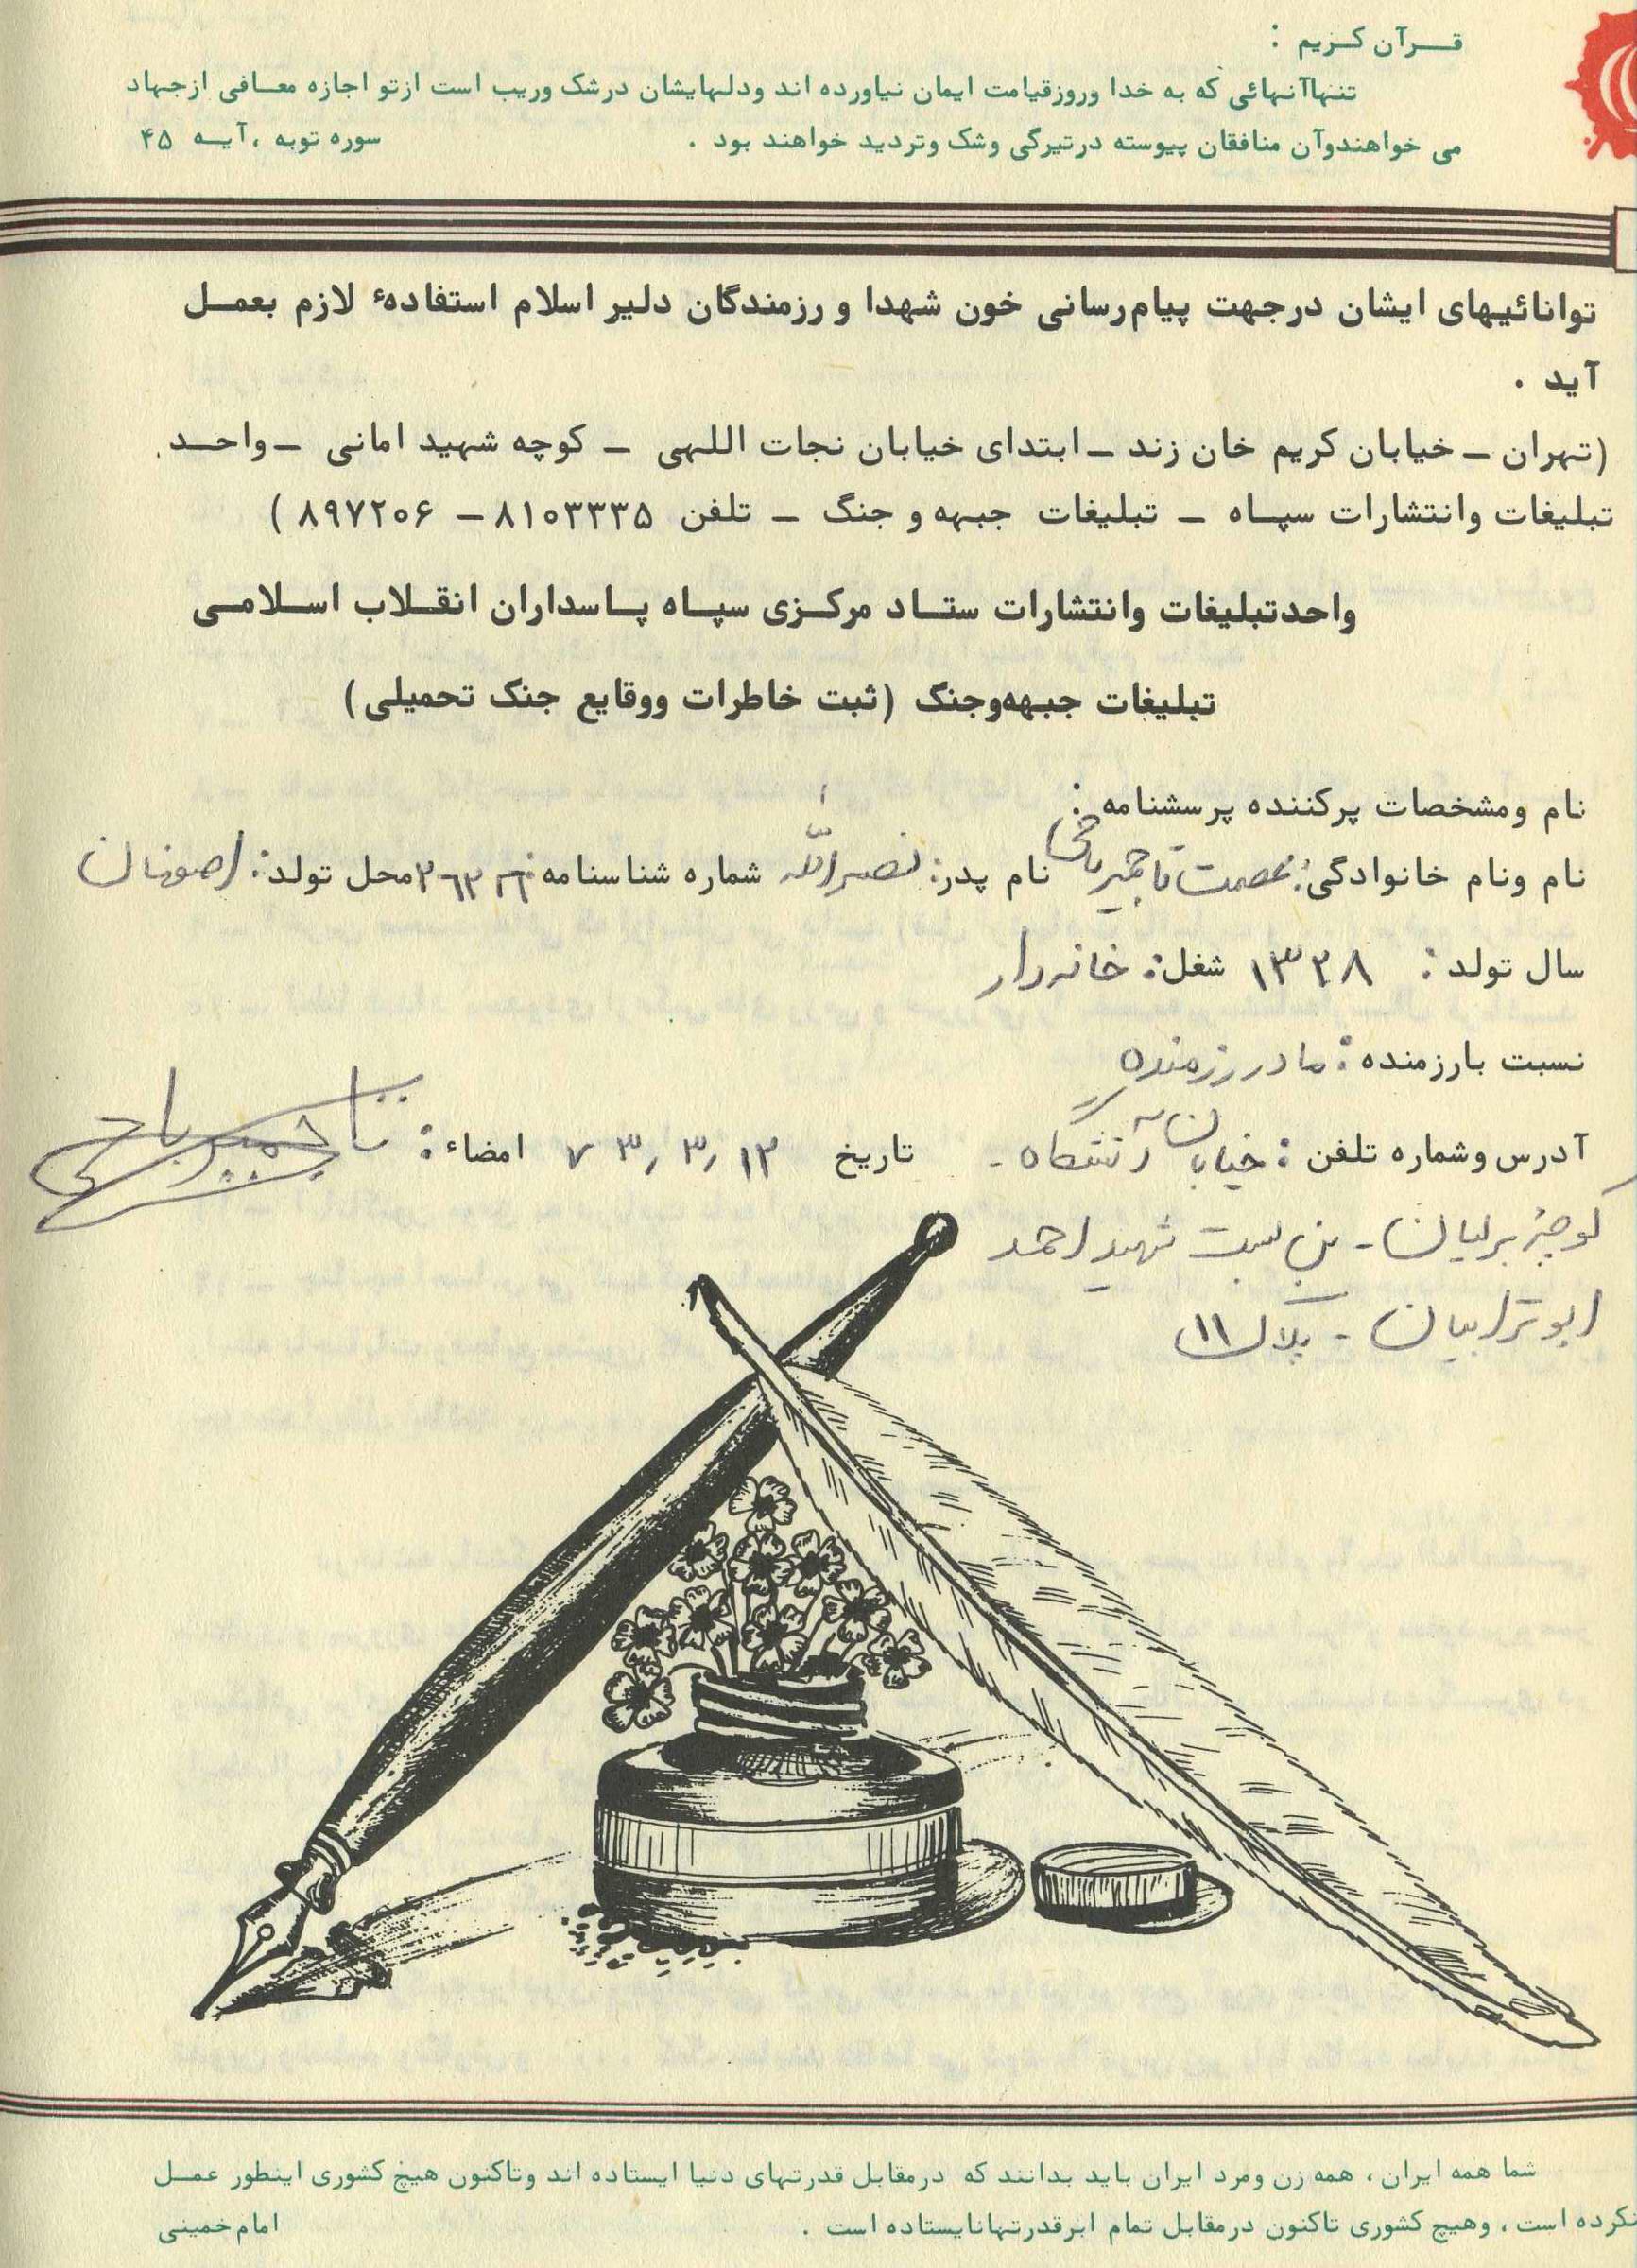 قــرآن کــزیم :
تنهاآنهائی که به خدا وروزقیامت ایمان نیاورده اند ودلهایشان درشک وریب است ازتو اجازه معــافی ازجهاد
می خواهندوآن منافقان پیوسته درتیرگی وشک وتردید خواهند بود . سوره توبه ،آیــه ۴۵
توانائیهای ایشان درجهت پیام‌رسانی خون شهدا و رزمندگان دلیر اسلام استفادهٔ لازم بعمــل
آید .
(تهران – خیابان کریم خان زند – ابتدای خیابان نجات اللهی – کوچه شهید امانی – واحــد
تبلیغات وانتشارات سپــاه – تبلیغات جبهه و جنگ – تلفن ۸۱۰۳۳۳۵ – ۸۹۷۲۰۶ )
واحدتبلیغات وانتشارات ستــاد مرکــزی سپــاه پــاسداران انقــلاب اســلامــی
تبلیغات جبهه‌وجنگ (ثبت خاطرات ووقایع جنگ تحمیلی)
نام ومشخصات پرکننده پرسشنامه :
نام ونام خانوادگی: عصمت تاجمیرباحی نام پدر: نصرالله شماره شناسنامه: محل تولد: اصفهان
سال تولد : ۱۳۲۸ شغل: خانه‌دار
نسبت بارزمنده : مادر رزمنده
آدرس وشماره تلفن : خیابان آتشگاه - تاریخ ۷۳٫۳٫۱۲ امضاء :
کوچه - بن بست شهید احمد
ابوترابیان - پلاک ۱۱
شما همه ایران ، همه زن ومرد ایران باید بدانند که درمقابل قدرتهای دنیا ایستاده اند وتاکنون هیچ کشوری اینطور عمــل
نکرده است ، وهیچ کشوری تاکنون درمقابل تمام ابرقدرتهانایستاده است . امام‌خمینی